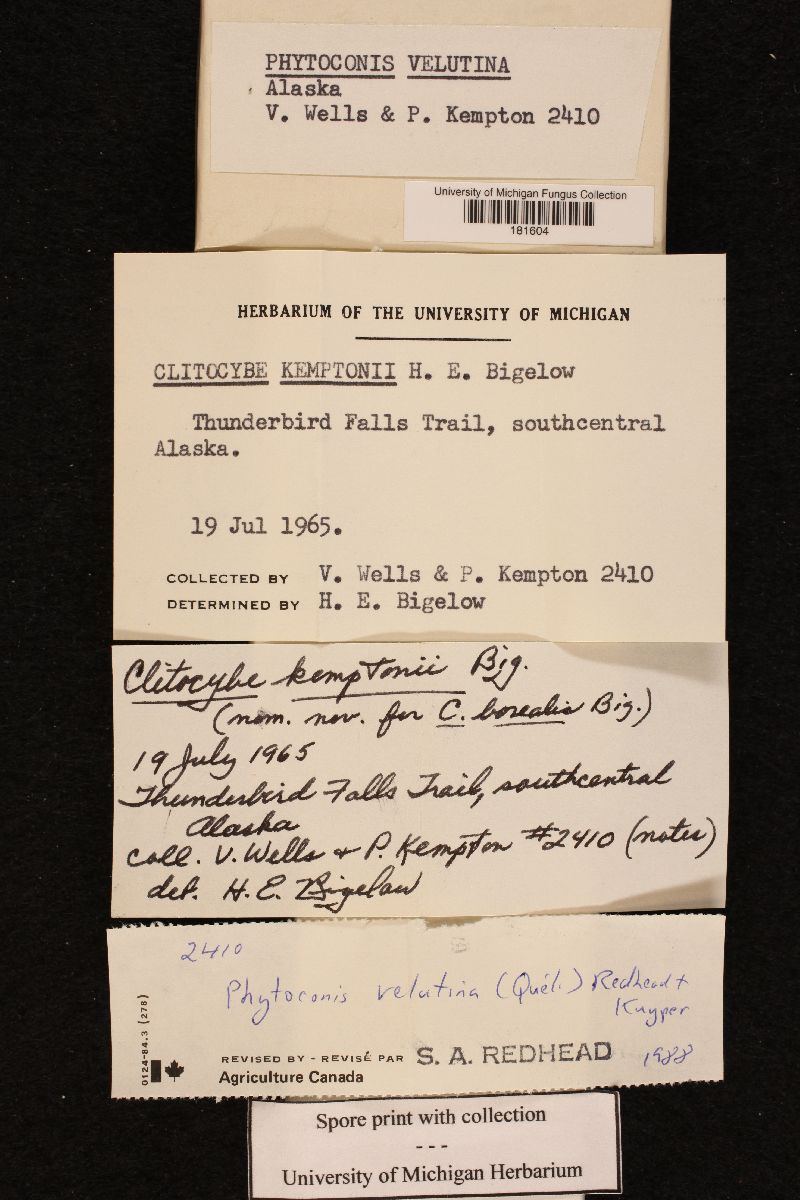 PHYTOCONIS VELUTINA
Alaska
V. Wells & P. Kempton 2410
University of Michigan Fungus Collection
181604
HERBARIUM OF THE UNIVERSITY OF MICHIGAN
CLITOCYBE KEMPTONII H. E. Bigelow
Thunderbird Falls Trail, southcentral
Alaska.
19 Jul 1965.
COLLECTED BY V. Wells & P. Kempton 2410
DETERMINED BY H. E. Bigelow
Clitocybe kemptonii Big.
(nom. nov. for C. borealis Big.)
19 July 1965
Thunderbird Falls Trail, southcentral
Alaska
coll. V. Wells & P. Kempton #2410 (notes)
det. H. E. Bigelow
2410
Phytoconis velutina (Quél.) Redhead +
Kuyper
0124-84.3 (278)
REVISED BY - REVISÉ PAR S. A. REDHEAD 1988
Agriculture Canada
Spore print with collection
- - -
University of Michigan Herbarium